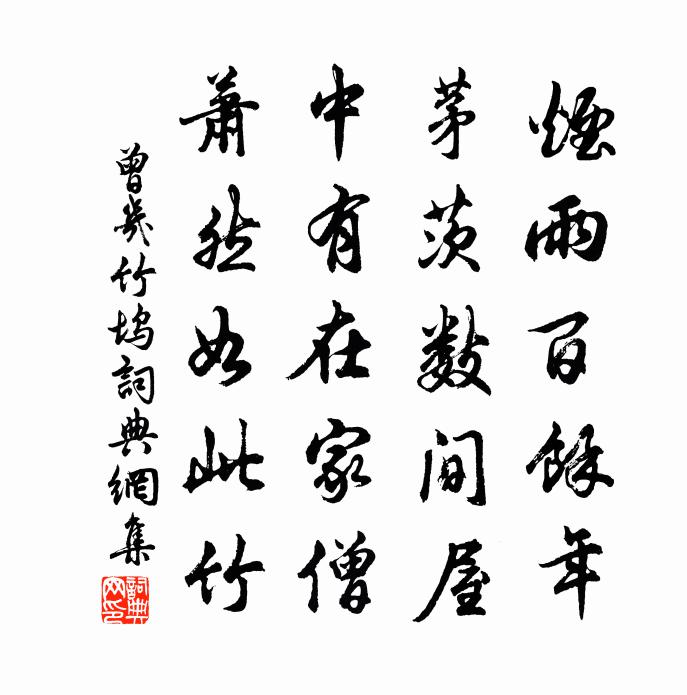 煙雨百餘年
茅茨數間屋
中有在家僧
蕭然如此竹
曾幾竹塢詞典網集
詞典網印